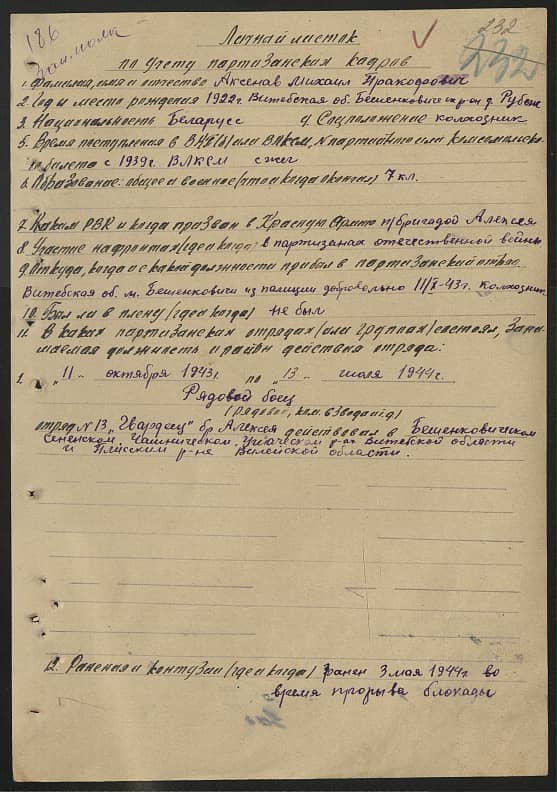 186
232
232
Личный листок
по учету партизанских кадров
1. Фамилия, имя и отчество Аксенав Михаил
2. Год и место рождения 1922г. Витебская об. Бешенковичск р-н д. Рубеж
3. Национальность Беларусс 4. Соцположение колхозник
5. Время поступления в ВКП(б) или ВЛКСМ, № партийного или комсомольск.
билета с 1939г. ВЛКСМ сжег
6. Образование: общее и военное (что и когда окончил) 7 кл.
7. Каким РВК и когда призван в Красную Армию п/бригадой Алексея
8. Участие на фронтах (где и когда) в партизанах отечественной войны
9. Откуда, когда и с какой должности прибыл в партизанский отряд
Витебская об. м. Бешенковичи из полиции добровольно 11/X-43г. Колхозник
10. Был ли в плену (где и когда) не был
11. В каких партизанских отрядах (или группах) состоял, зани-
маемая должность и район действия отряда:
1. с "11" октября 1943г. по "13" июля 1944г.
Рядовой боец
(рядовой, ком. взвода и д)
отряд №13 "Гвардеец" бр. Алексея действовал в Бешенковическом
Сененском, Чашническом, Ушачском р-нах Витебской области
и Плисским р-не Вилейской области.
12. Ранения и контузии (где и когда) ранен 3 мая 1944г. во
время прорыва блокады